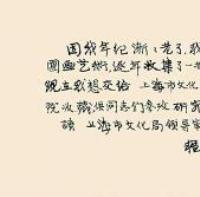 因我年纪渐渐老了,我
国画艺术,逐年收集了一
现在我想交给 上海市文化
院收藏供同志们参攷研究
请 上海市文化局领导审